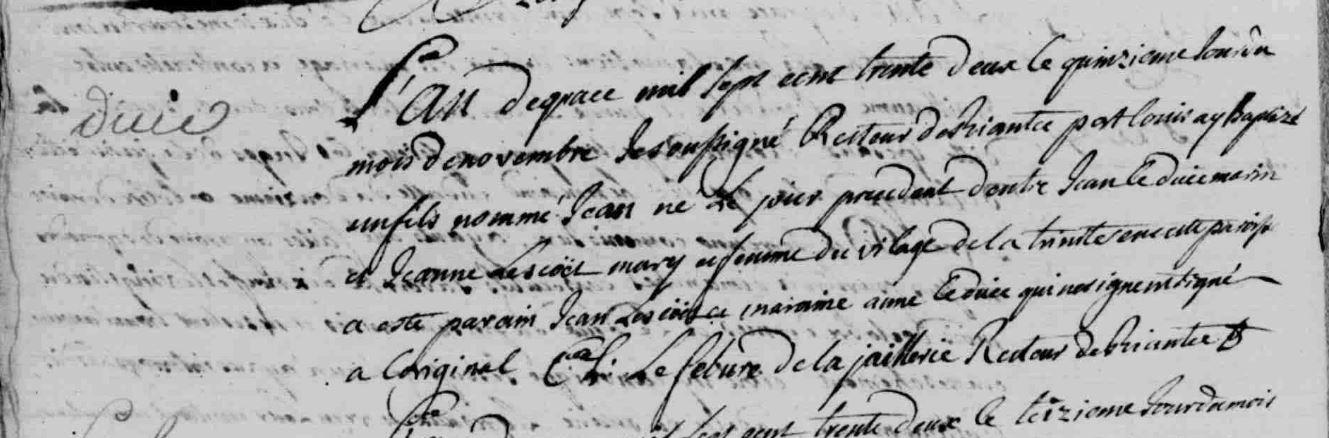 L'an de grace mil sept cent trente deux le quinzieme jour du
duic
mois de novembre je soussigné Recteur de Riantec port Louis ay Baptizé
un fils nommé Jean né Le jour precedent d'entre Jean Le duic marin
et Jeanne Lescoët mary et femme du vilage de la trinité en cette paroisse
a esté parain Jean Lescoët et maraine anne Le duic qui ne signent signé
a Loriginal C. h. Le febure de la jaillerie Recteur de Riantec
sept cent trente deux le teizieme jour du mois